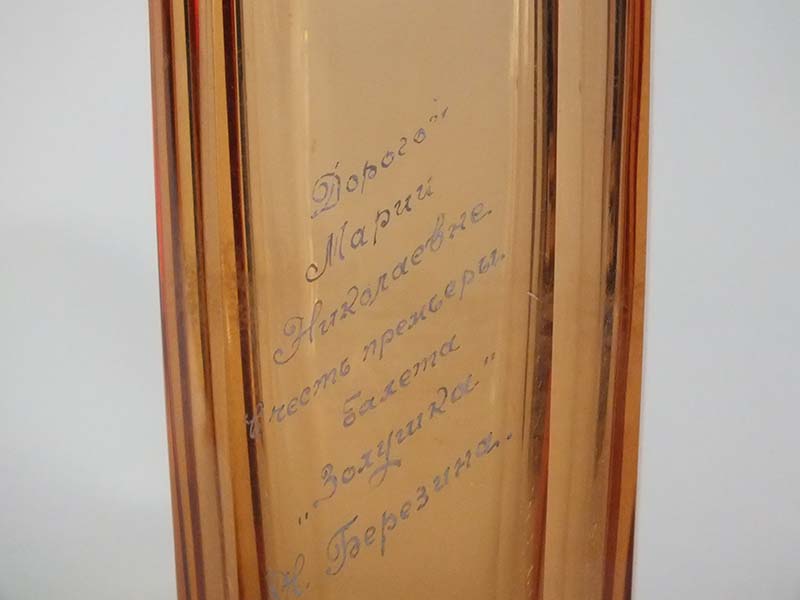 Дорогой
Марии
Николаевне
В честь премьеры
балета
"Золушка"
Н. Березина.